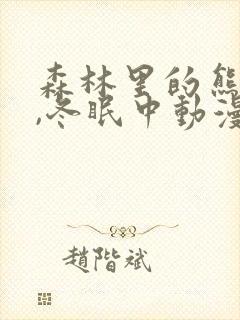 森林里的熊
,冬眠中动漫
趙階斌